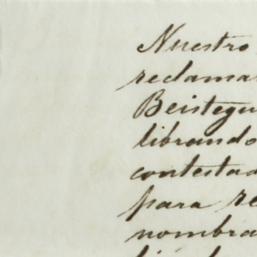 Nuestro
reclama
Beistegu
librando
contestad
para re
nombra